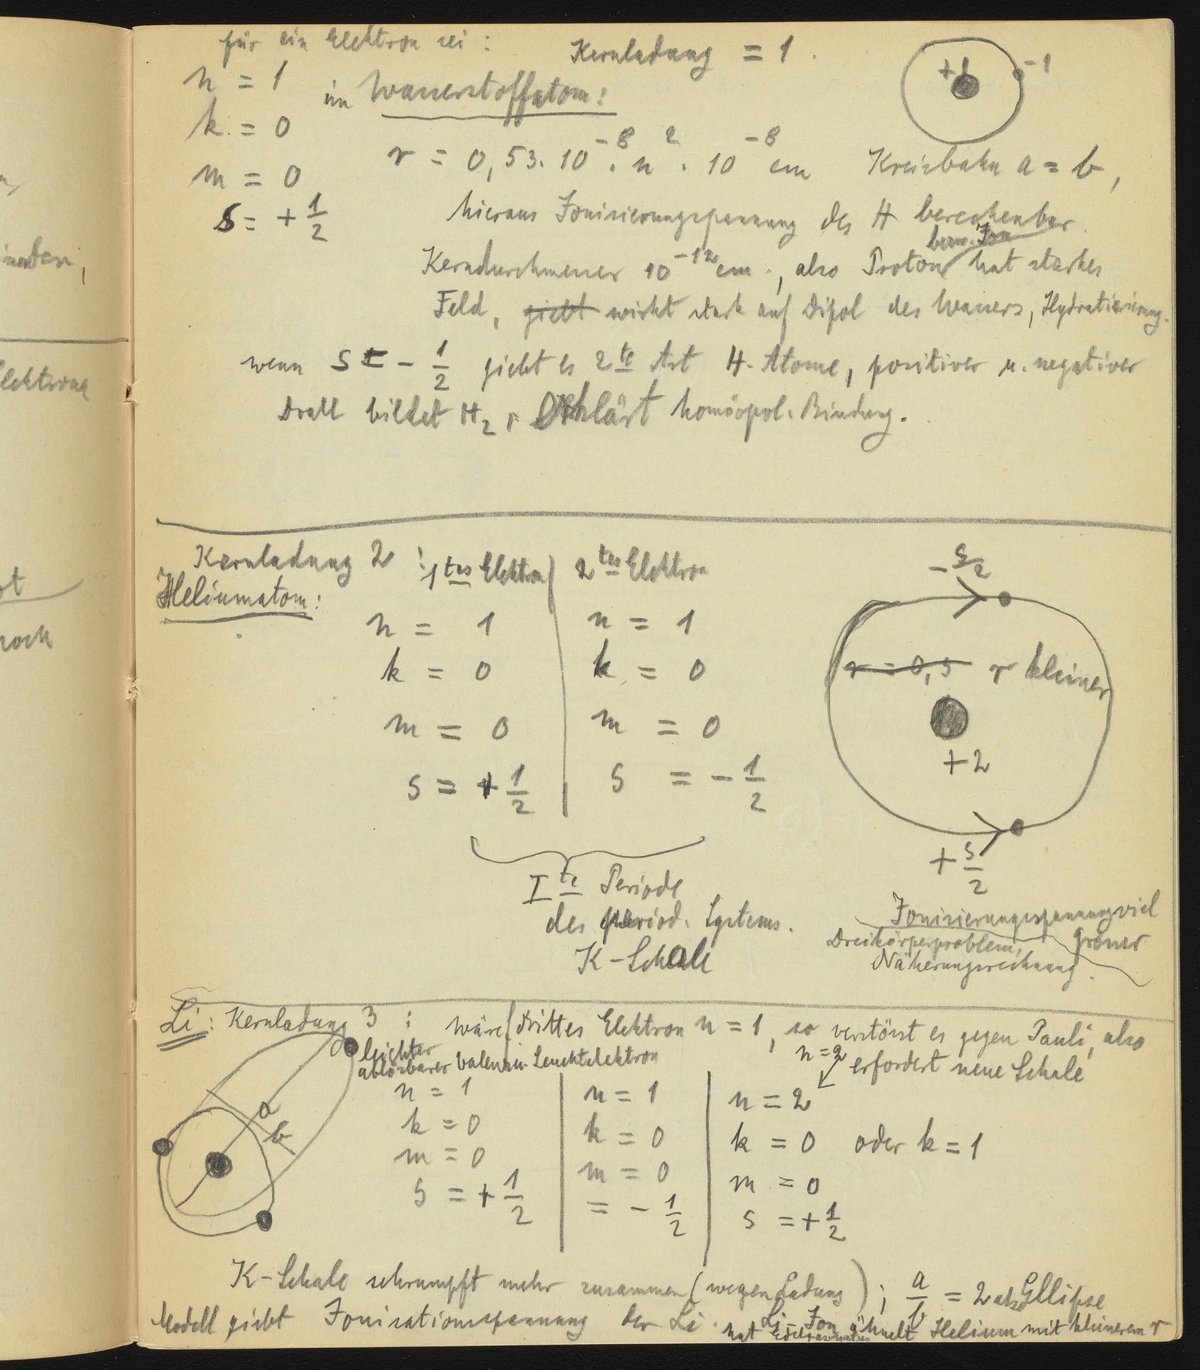 für ein Elektron sei: Kernladung = 1.
n = 1 im Wasserstoffatom: +1 -1
k = 0
r = 0,53·10⁻⁸·n²·10⁻⁸ cm Kreisbahn a = b,
m = 0
s = +1/2 hieraus Ionisierungsspannung des H berechenbar.
bezw. Ion
Kerndurchmesser 10⁻¹² cm, also Proton hat starkes
Feld, giebt wirkt stark auf Dipol des Wassers, Hydratisierung.
wenn s = -1/2 giebt es 2te Art H-Atome, positiver u. negativer
Drall bildet H₂, erklärt homöopol. Bindung.
Kernladung 2: 1tes Elektron 2tes Elektron
Heliumatom:
n = 1 n = 1
k = 0 k = 0
m = 0 m = 0
s = +1/2 s = -1/2
-s/2
r = 0,5 r kleiner
+2
+s/2
Ite Periode
des period. Systems.
K-Schale
Ionisierungsspannung viel
grösser
Dreikörperproblem,
Näherungsrechnung.
Li: Kernladung 3: wäre drittes Elektron n = 1, so verstösst es gegen Pauli, also
n = 2 erfordert neue Schale
leichter
ablösbarer Leuchtelektron
a
b
n = 1 n = 1 n = 2
k = 0 k = 0 k = 0 oder k = 1
m = 0 m = 0 m = 0
s = +1/2 = -1/2 s = +1/2
K-Schale schrumpft mehr zusammen (wegen Ladung); a/b = 2 als Ellipse
Modell giebt Ionisationsspannung des Li. Li-Ion ähnelt Helium mit kleinerem r
hat